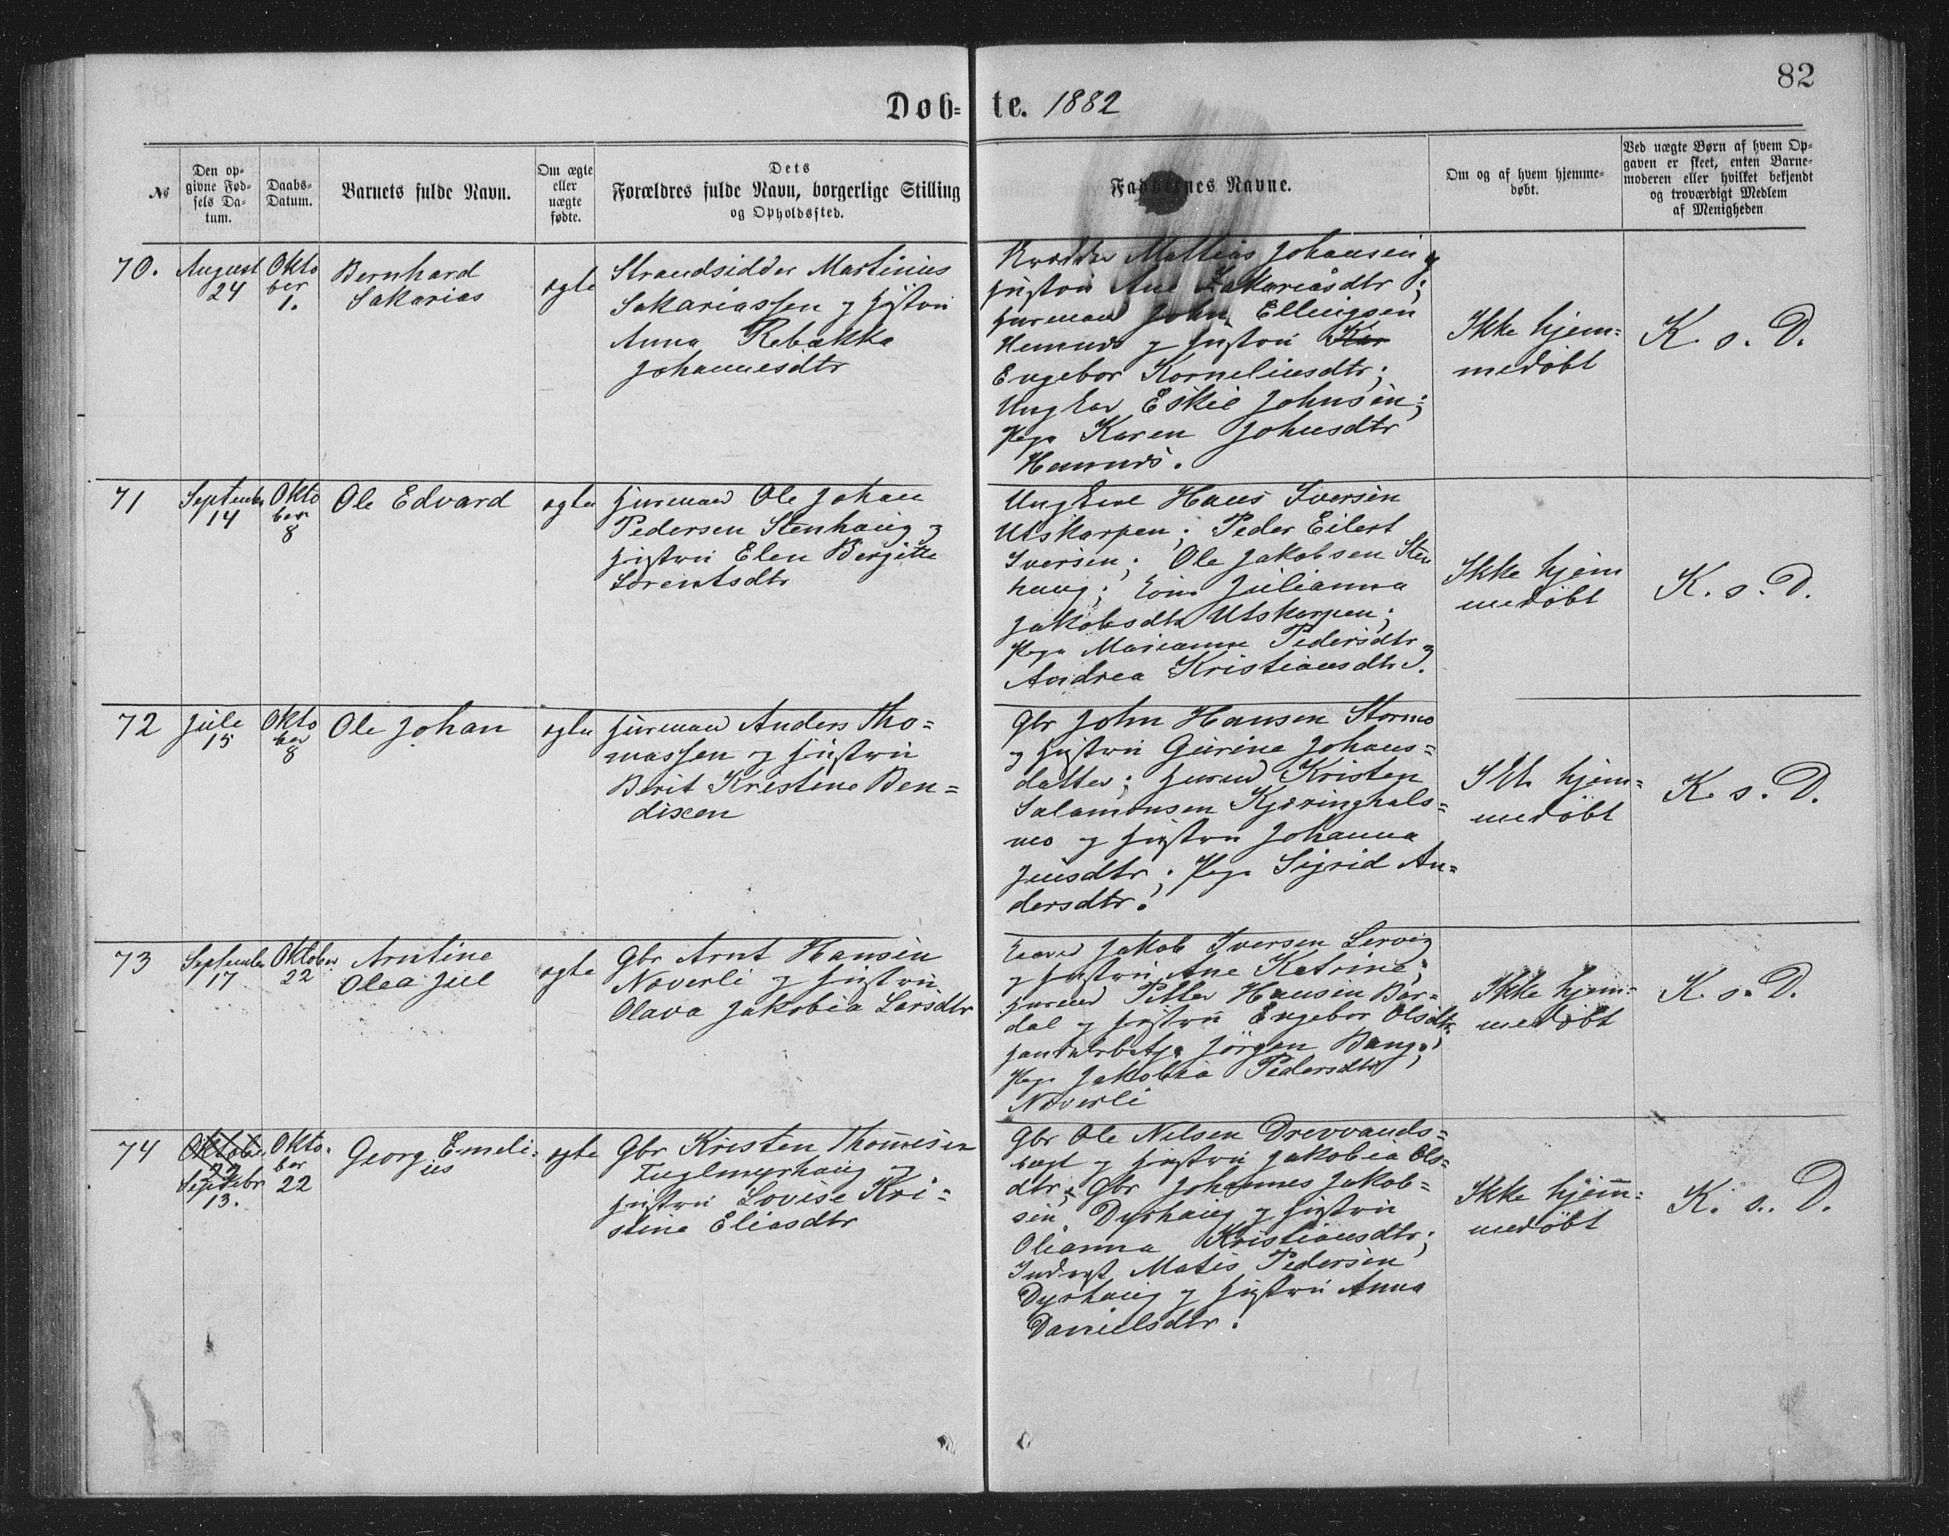 82
Døb= te. 1882
№
Den op-
givne Fød-
sels Da-
tum.
Daabs-
Datum.
Barnets fulde Navn.
Om ægte
eller
uægte
fødte.
Dets
Forældres fulde Navn, borgerlige Stilling
og Opholdssted.
Faddernes Navne.
Om og af hvem hjemme-
døbt.
Ved uægte Børn af hvem Op-
gaven er skeet, enten Barne-
moderen eller hvilket bekjendt
og troværdigt Medlem
af Menigheden
70.
August
24
Okto
ber
1.
Bernhard
Sakarias
ægte
Strandsidder Martinius
Sakariassen og Hustru
Anna Rebakka
Johannesdtr
Mattias Johansen og
Hustru Ane Sakariasdtr;
Husmand John Ellingsen
Hemnes og Hustru
Engebor Korneliusdtr;
Ungkar Eskil Johnsen;
Pige Karen Johnsdtr
Hemnes.
Ikke hjem=
medøbt
K. s. D.
71
September
14
Okto
ber
8
Ole Edvard
ægte
Husmand Ole Johan
Pedersen Stenhaug og
Hustru Elen Bergitte
Lorentsdtr
Ungkarl Hans Iversen
Utskarpen; Peder Eilert
Iversen; Ole Jakobsen Sten
haug; Kone Julianna
Jakobsdtr Utskarpen;
Pige Marianne Pedersdtr og
Andrea Kristiansdtr.
Ikke hjem
medøbt
K. s. D.
72
Juli
15
Okto
ber
8
Ole Johan
ægte
Husmand Anders Tho=
massen og Hustru
Berit Kristine Ben=
dixen
Gbr John Hansen Stormo
og Hustru Gurine Johans=
datter; Husmd Kristen
Salamonsen Kjæringhals=
mo og Hustru Johanna
Jensdtr; Pige Sigrid An=
dersdtr.
Ikke hjem=
medøbt
K. s. D.
73
September
17
Oktober
22
Arntine
Olea Juel
ægte
Gbr Arnt Hansen
Noverli og Hustru
Olava Jakobia Larsdtr
Jakob Iversen Lervig
og Hustru Ane Katrine;
Husmd Petter Hansen Bar=
dal og Hustru Engebor Olsdtr
Jørgen Bang;
Pige Jakobia Pedersdtr
Noverli
Ikke hjem=
medøbt
K. s. D.
74
Oktober
22
Septebr
13.
Okto.
ber
22
Georg Emeli=
us
ægte
Gbr Kristen Thomesen
Fuglmyrhaug og
Hustru Lovise Kri=
stina Eliasdtr
Gbr Ole Nilsen Drevvands=
bygt og Hustru Jakobia Ols=
dtr; Gbr Johannes Jakob=
sen Dyrhaug og Hustru
Olianna Kristiansdtr;
Inderst Matis Pedersen
Dyrhaug og Hustru Anna
Danielsdtr.
Ikke hjem=
medøbt
K. s. D.